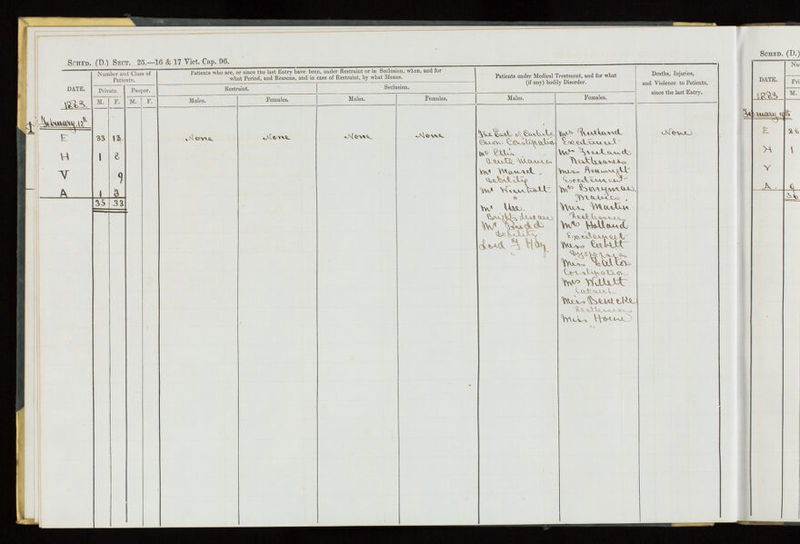 SCHED. (D.) SECT. 25.—16 & 17 Vict. Cap. 96.
DATE.
1883
Number and Class of Patients.
Private.
Pauper.
M. F. M. F.
Patients who are, or since the last Entry have been, under Restraint or in Seclusion, when, and for
what Period, and Reasons, and in case of Restraint, by what Means.
Restraint.
Seclusion.
Males. Females. Males. Females.
Patients under Medical Treatment, and for what
(if any) bodily Disorder.
Males. Females.
Deaths, Injuries,
and Violence to Patients,
since the last Entry.
February 12th
E 33 13
H 1 8
V 9
A 1 3
35 33
None
None
None
None
The Earl of Carlisle
Constipation
Mr Ellis
Acute Mania
Mr Mansel
Debility
Mr
"
Mr
Brights disease
Mr Budd
Debility
Lord F Hay
"
Mrs
Excitement
Mrs
Restlessness
Miss
Excitement
Mrs
Mania
Miss Martin
Restlessness
Mrs Holland
Excitement
Miss
Dyspepsia
Miss
Constipation
Mrs Willett
Catarrh
Miss
Restlessness
Miss Horne
"
None
SCHED. (D.)
DATE.
1883
M.
E
H 1
V
A